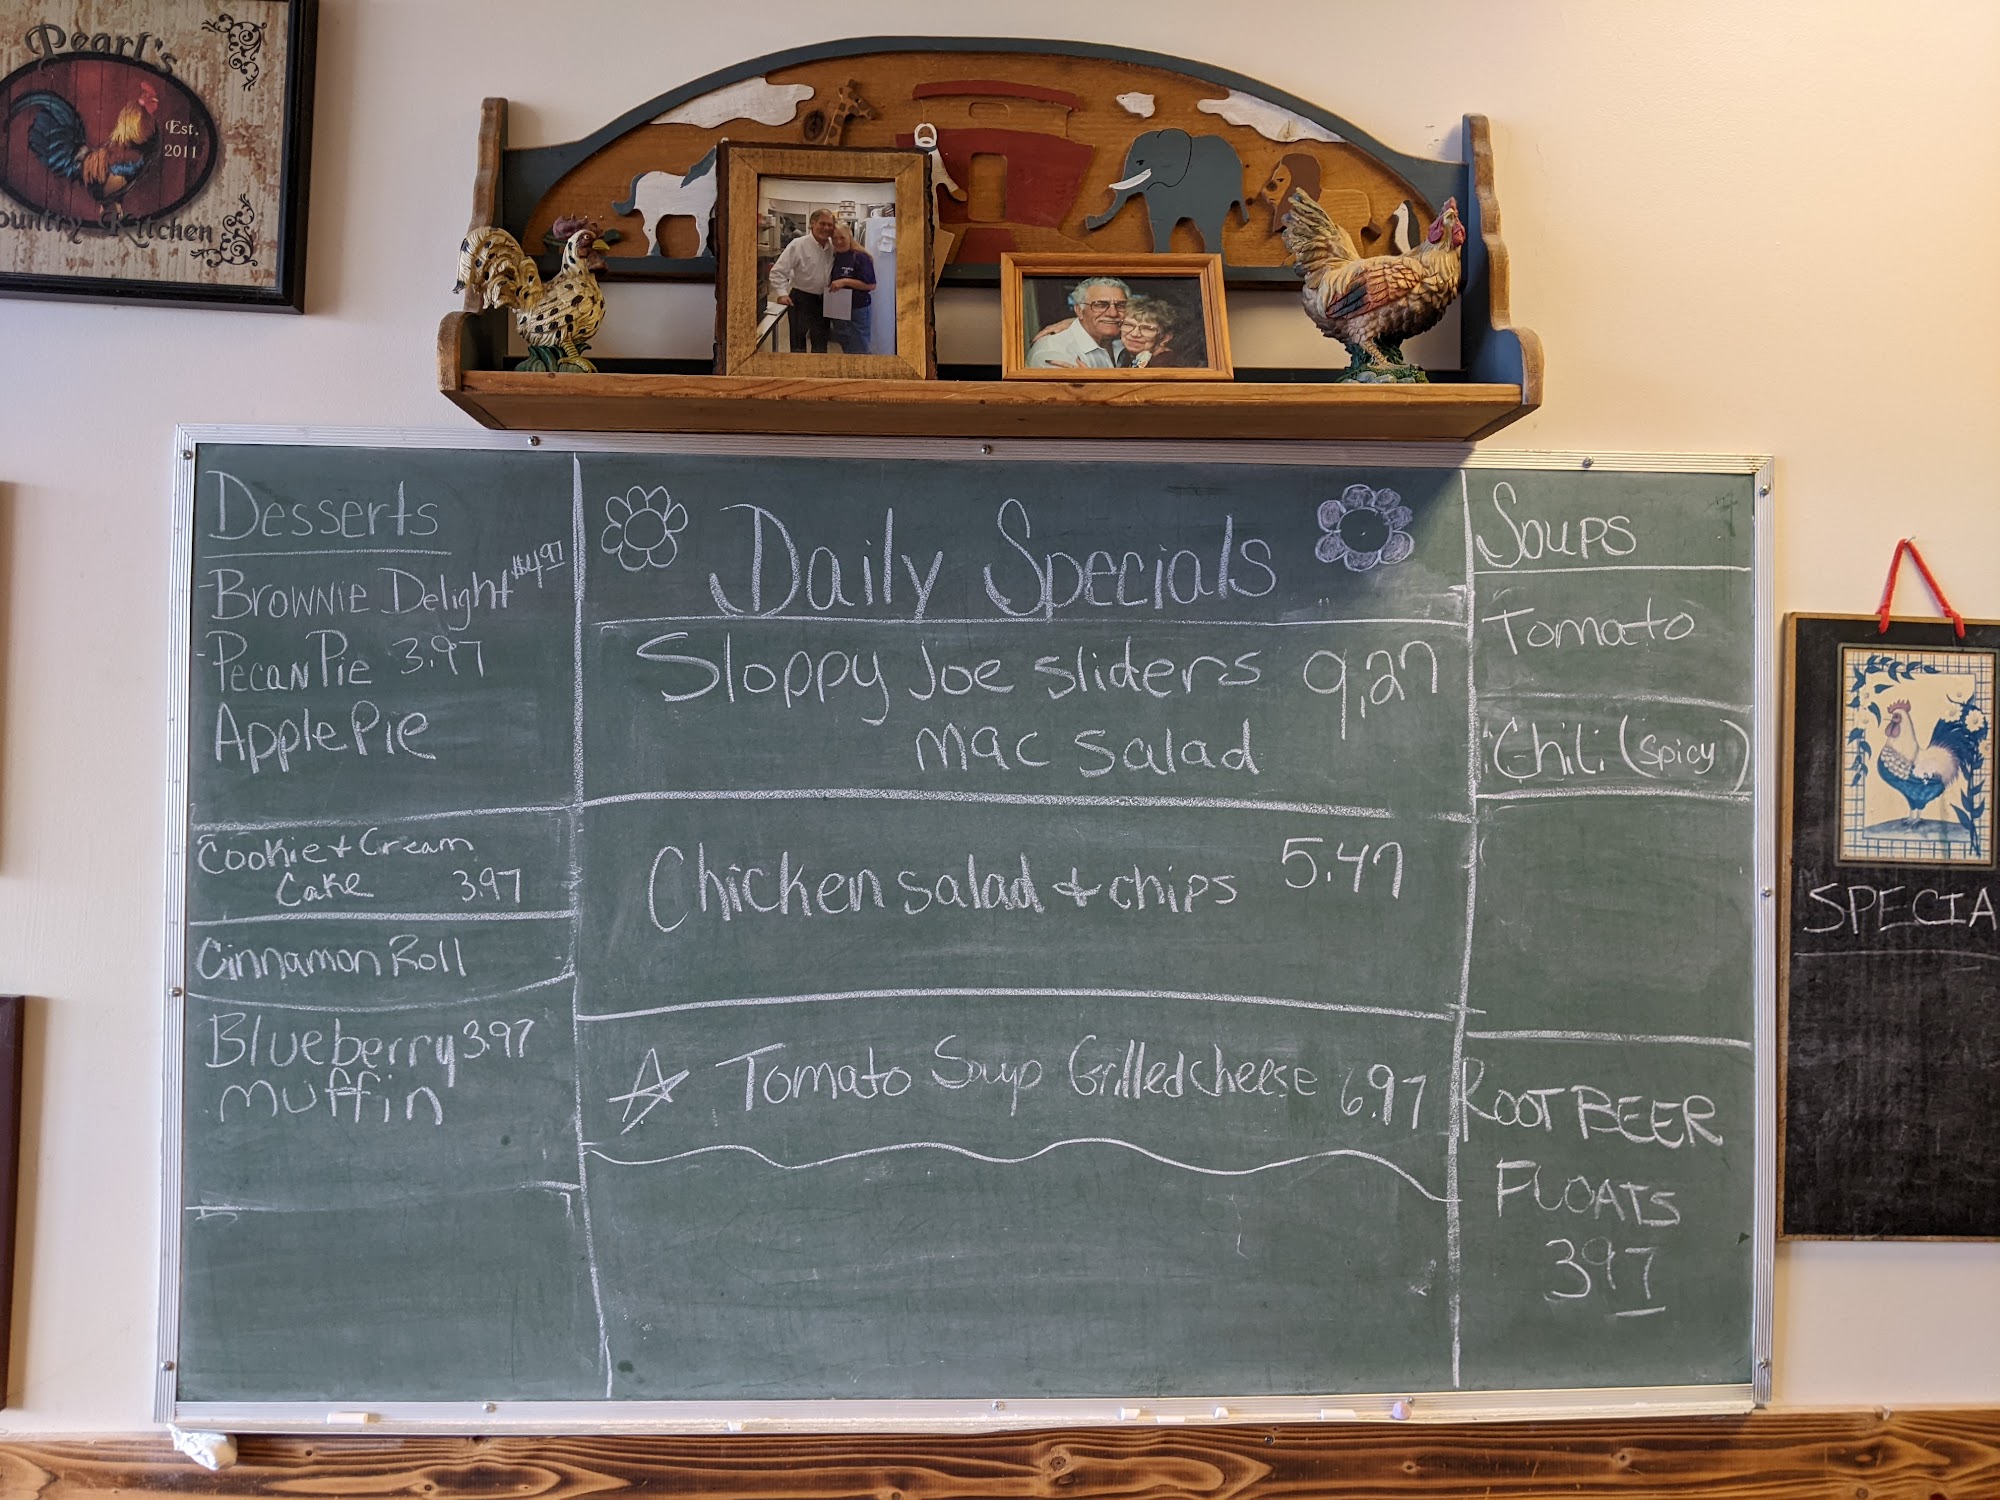 Pearl's
Est.
2011
Country Kitchen
Desserts
-Brownie Delight $4.97
-Pecan Pie 3.97
Apple Pie
Cookie + Cream
Cake 3.97
Cinnamon Roll
Blueberry 3.97
muffin
Daily Specials
Sloppy Joe sliders 9.27
mac salad
Chicken salad + chips 5.47
Tomato Soup Grilled cheese 6.97
Soups
Tomato
Chili (spicy)
ROOT BEER
FLOATS
3.97
SPECIA